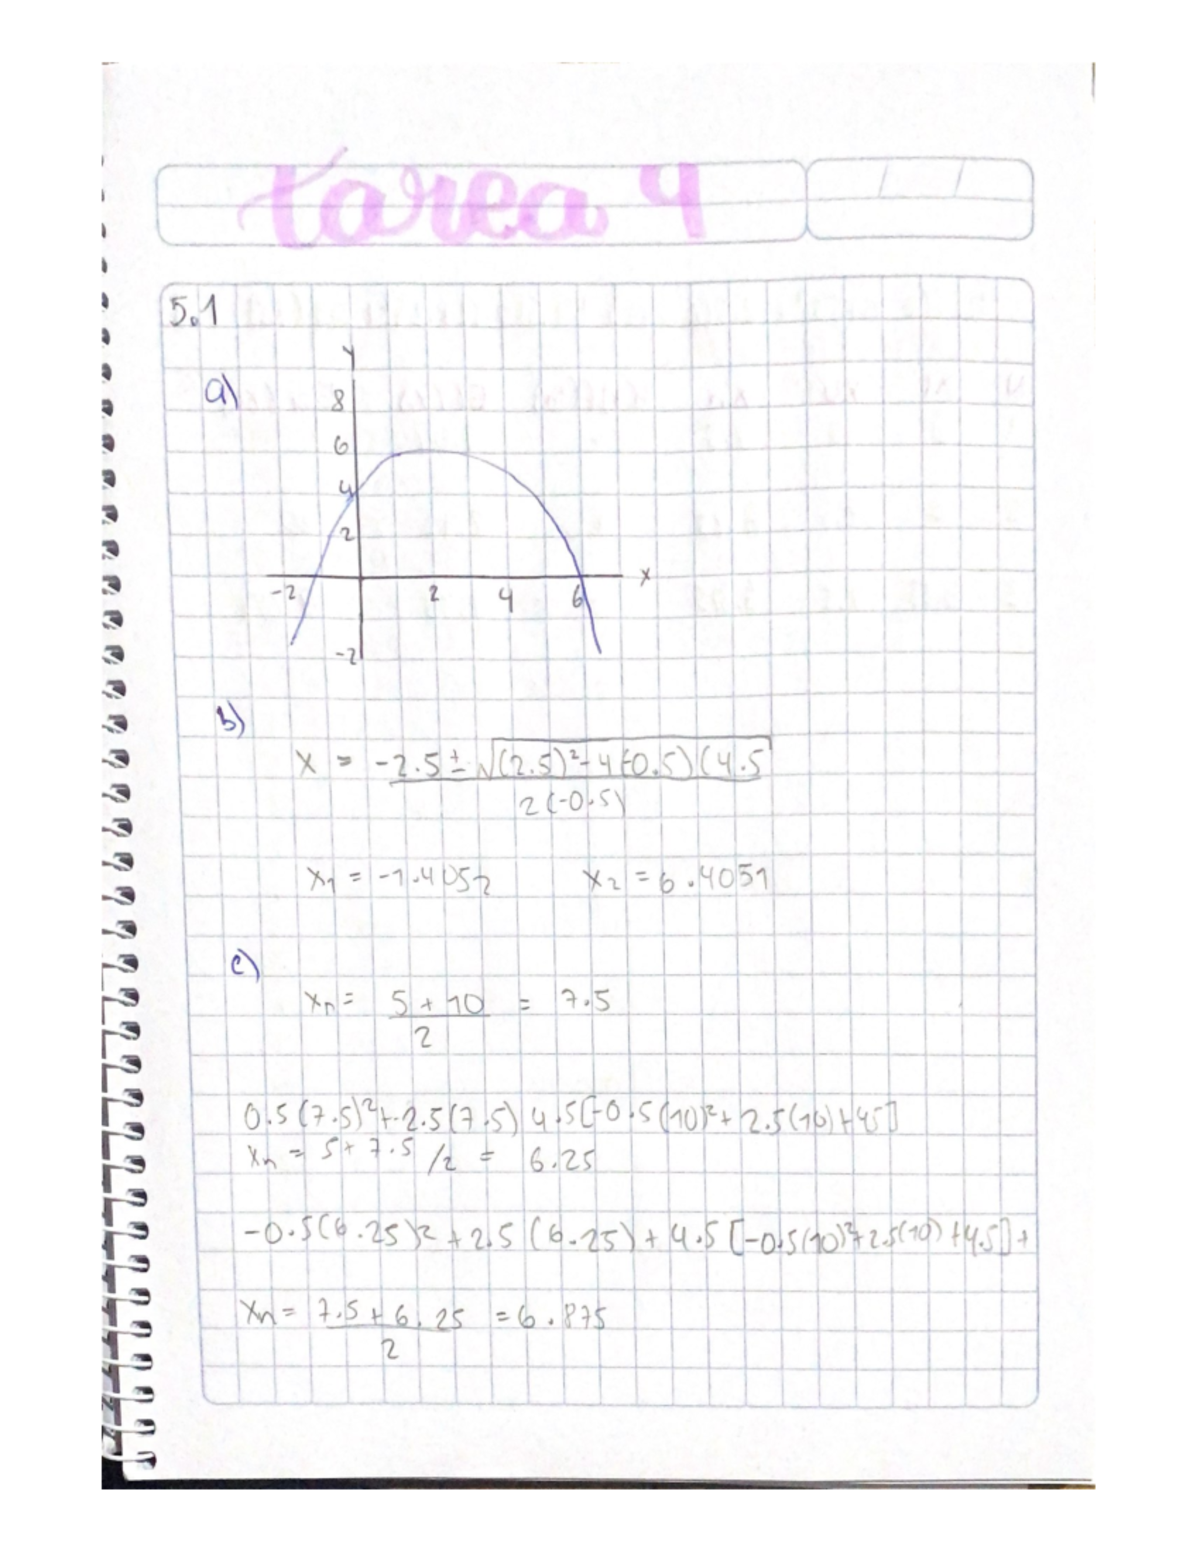 tarea 4
5.1
a)
y
8
6
4
2
-2 2 4 6 x
-2
b)
x = -2.5 ± √(2.5)²-4(-0.5)(4.5
2(-0.5)
x₁ = -1.4052 x₂ = 6.4051
c)
xn = 5 + 10 = 7.5
2
0.5(7.5)²+2.5(7.5) 4.5[-0.5(10)²+2.5(10)+45]
xn = 5+7.5 /2 = 6.25
-0.5(6.25)2 + 2.5 (6.25) + 4.5 [-0.5(10)²+2.5(10)+4.5] +
xn = 7.5 + 6.25 = 6.875
2